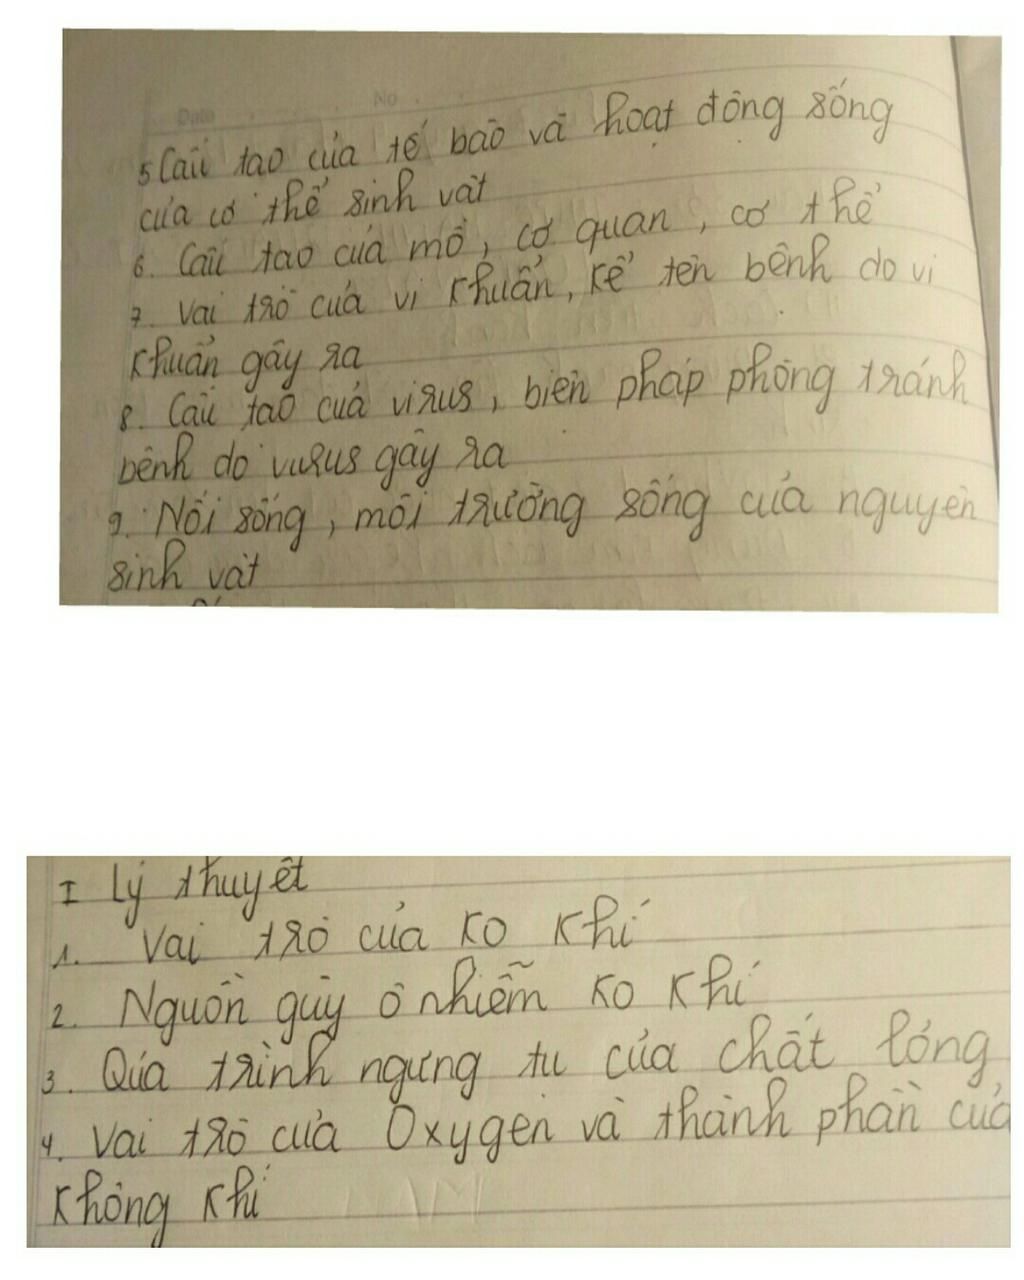 Date No
5 Cấu tạo của tế bào và hoạt động sống
của cơ thể sinh vật
6. Cấu tạo của mô, cơ quan, cơ thể
7. Vai trò của vi khuẩn, kể tên bệnh do vi
khuẩn gây ra
8. Cấu tạo của virus, biện pháp phòng tránh
bệnh do virus gây ra
9. Nơi sống, môi trường sống của nguyên
sinh vật
I Lý thuyết
1. Vai trò của ko khí
2. Nguồn gây ô nhiễm ko khí
3. Quá trình ngưng tụ của chất lỏng
4. Vai trò của Oxygen và thành phần của
không khí